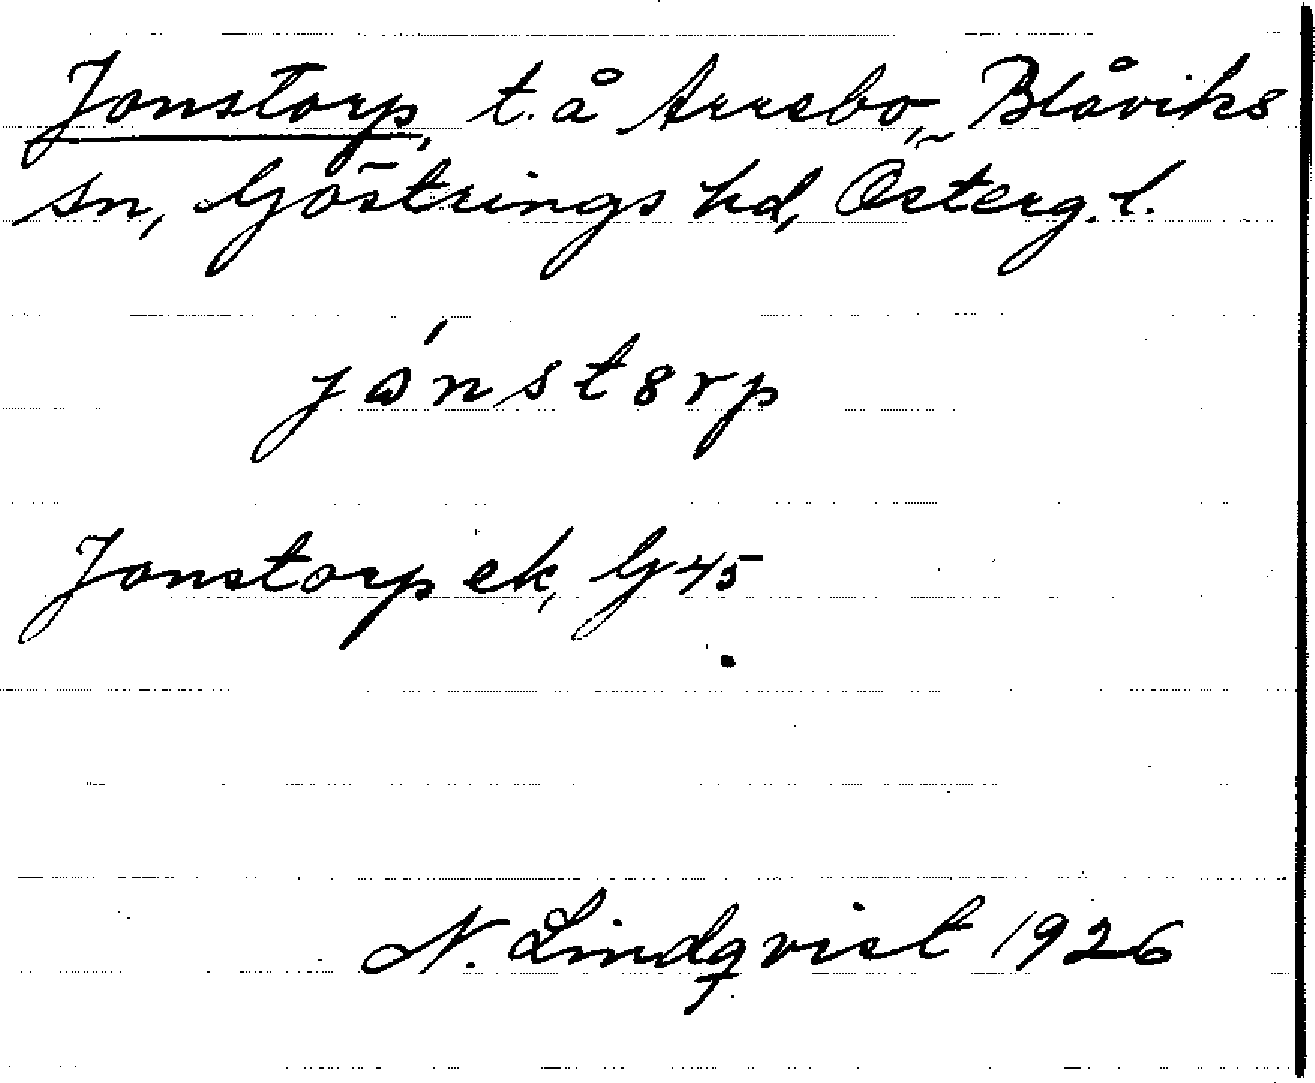 Jonstorp, t. å Arrebo, Blåviks
sn, Göstrings hd, Österg. l.
jɷ́nstɵrp
Jonstorp ek, G 45
N. Lindqvist 1926